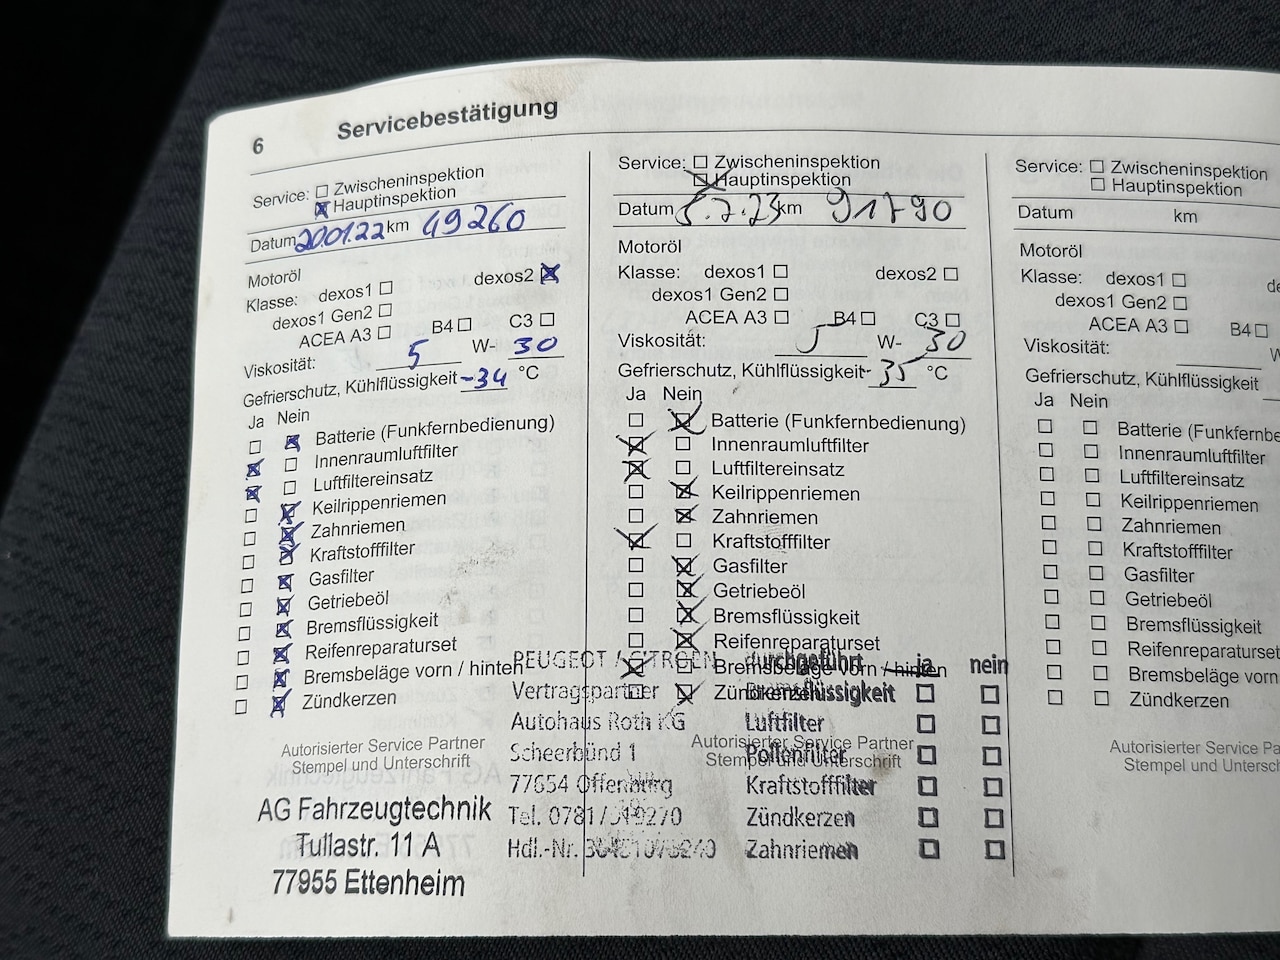 6 Servicebestätigung
Service: Zwischeninspektion
Hauptinspektion
Datum 20.01.22 km 49260
Motoröl
Klasse: dexos1 dexos2
dexos1 Gen2
ACEA A3 B4 C3
Viskosität: 5 W- 30
Gefrierschutz, Kühlflüssigkeit -34 °C
Ja Nein
Batterie (Funkfernbedienung)
Innenraumluftfilter
Luftfiltereinsatz
Keilrippenriemen
Zahnriemen
Kraftstofffilter
Gasfilter
Getriebeöl
Bremsflüssigkeit
Reifenreparaturset
Bremsbeläge vorn / hinten
Zündkerzen
Autorisierter Service Partner
Stempel und Unterschrift
AG Fahrzeugtechnik
Tullastr. 11 A
77955 Ettenheim
Service: Zwischeninspektion
Hauptinspektion
Datum 5.7.23 km 91790
Motoröl
Klasse: dexos1 dexos2
dexos1 Gen2
ACEA A3 B4 C3
Viskosität: 5 W- 30
Gefrierschutz, Kühlflüssigkeit -35 °C
Ja Nein
Batterie (Funkfernbedienung)
Innenraumluftfilter
Luftfiltereinsatz
Keilrippenriemen
Zahnriemen
Kraftstofffilter
Gasfilter
Getriebeöl
Bremsflüssigkeit
Reifenreparaturset
Bremsbeläge vorn / hinten
Zündkerzen
Autorisierter Service Partner
Stempel und Unterschrift
PEUGEOT / CITROEN
Vertragspartner
Autohaus Roth KG
Scheerbünd 1
77654 Offenburg
Tel. 0781 /
Hdl.-Nr.
durchgeführt ja nein
Bremsflüssigkeit
Luftfilter
Pollenfilter
Kraftstofffilter
Zündkerzen
Zahnriemen
Service: Zwischeninspektion
Hauptinspektion
Datum km
Motoröl
Klasse: dexos1 de
dexos1 Gen2
ACEA A3 B4
Viskosität: W
Gefrierschutz, Kühlflüssigkeit
Ja Nein
Batterie (Funkfernbe
Innenraumluftfilter
Luftfiltereinsatz
Keilrippenriemen
Zahnriemen
Kraftstofffilter
Gasfilter
Getriebeöl
Bremsflüssigkeit
Reifenreparaturset
Bremsbeläge vorn
Zündkerzen
Autorisierter Service Pa
Stempel und Untersc